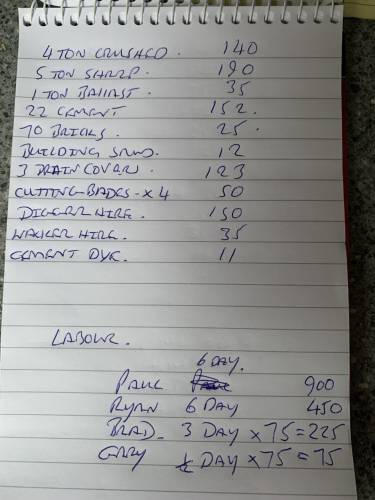 4 TON CRUSHED. 140
5 TON SHARP. 190
1 TON BALLAST. 35
22 CEMENT 152.
70 BRICKS. 25.
BUILDING SAND. 12
3 DRAIN COVERS 123
CUTTING BADES - X 4 50
DIGGER HIRE. 150
WACKER HIRE. 35
CEMENT DYE. 11
LABOUR.
6 DAY.
PAUL 900
RYAN 6 DAY 450
BRAD 3 DAY x 75 = 225
GARY DAY x 75 = 75